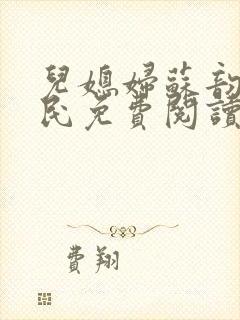 兒媳婦蘇韵
民免費閱讀
費翔